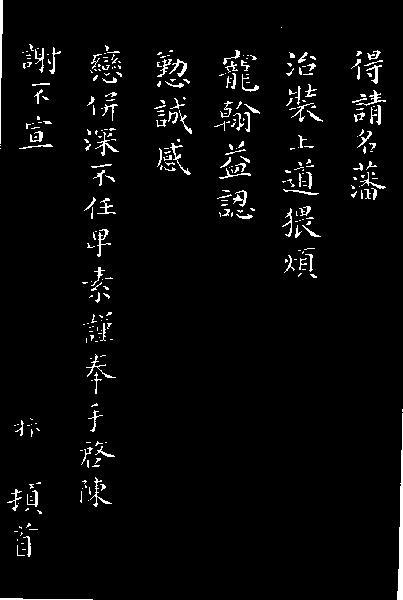 得請名藩
治裝上道猥煩
寵翰益認
懃誠感
戀併深不任卑素謹奉手啓陳
謝不宣 抃 頓首